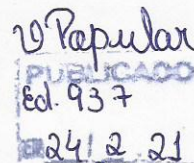 O Popular
PUBLICADO
Ed. 937
24/2.21